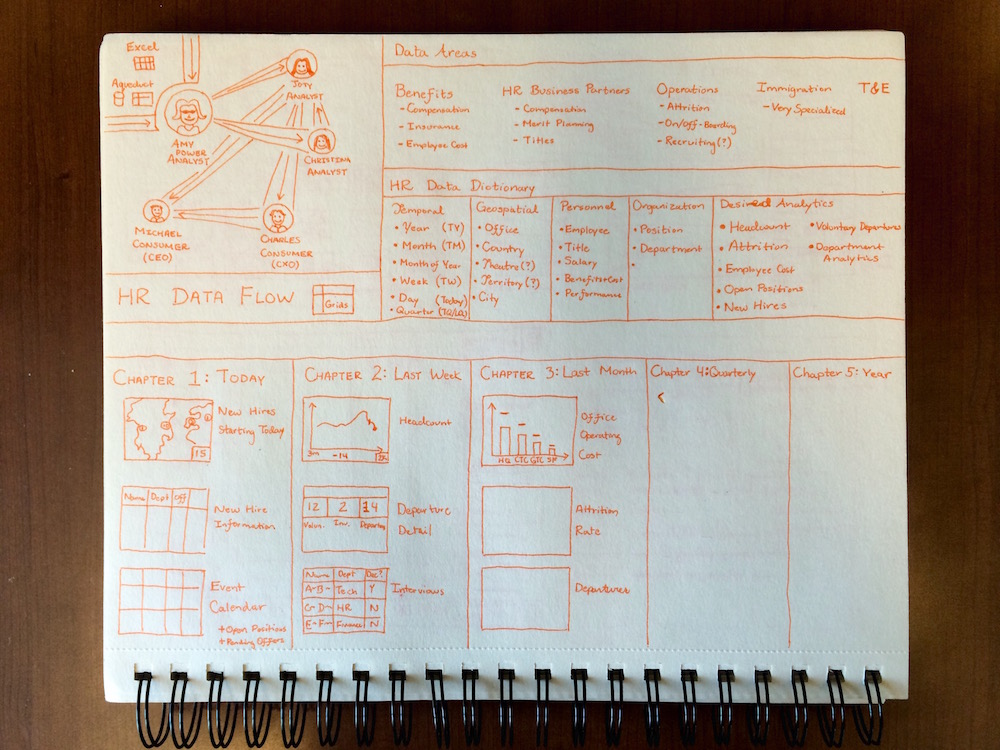 Excel
Aqueduct
AMY
POWER
ANALYST
JOEY
ANALYST
CHRISTINA
ANALYST
MICHAEL
CONSUMER
(CEO)
CHARLES
CONSUMER
(CXO)
HR DATA FLOW
Grids
Data Areas
Benefits
- Compensation
- Insurance
- Employee Cost
HR Business Partners
- Compensation
- Merit Planning
- Titles
Operations
- Attrition
- On/Off-Boarding
- Recruiting(?)
Immigration
- Very Specialized
T&E
HR Data Dictionary
Temporal
• Year (TY)
• Month (TM)
• Month of Year
• Week (TW)
• Day (Today)
• Quarter (TQ/LQ)
Geospatial
• Office
• Country
• Theatre(?)
• Territory(?)
• City
Personnel
• Employee
• Title
• Salary
• Benefits Cost
• Performance
Organization
• Position
• Department
•
Desired Analytics
• Headcount
• Attrition
• Employee Cost
• Open Positions
• New Hires
• Voluntary Departures
• Department
Analytics
CHAPTER 1: TODAY
15
New Hires
Starting Today
Name Dept Off
New Hire
Information
Event
Calendar
+ Open Positions
+ Pending Offers
CHAPTER 2: LAST WEEK
3m -14
Headcount
12 2 14
Volun. Inv. Departing
Departure
Detail
Name Dept Dec?
A-B~ Tech Y
C-D~ HR N
E-F~ Finance N
Interviews
CHAPTER 3: Last Month
HQ CTC GTC SF
Office
Operating
Cost
Attrition
Rate
Departures
Chapter 4: Quarterly
Chapter 5: Year